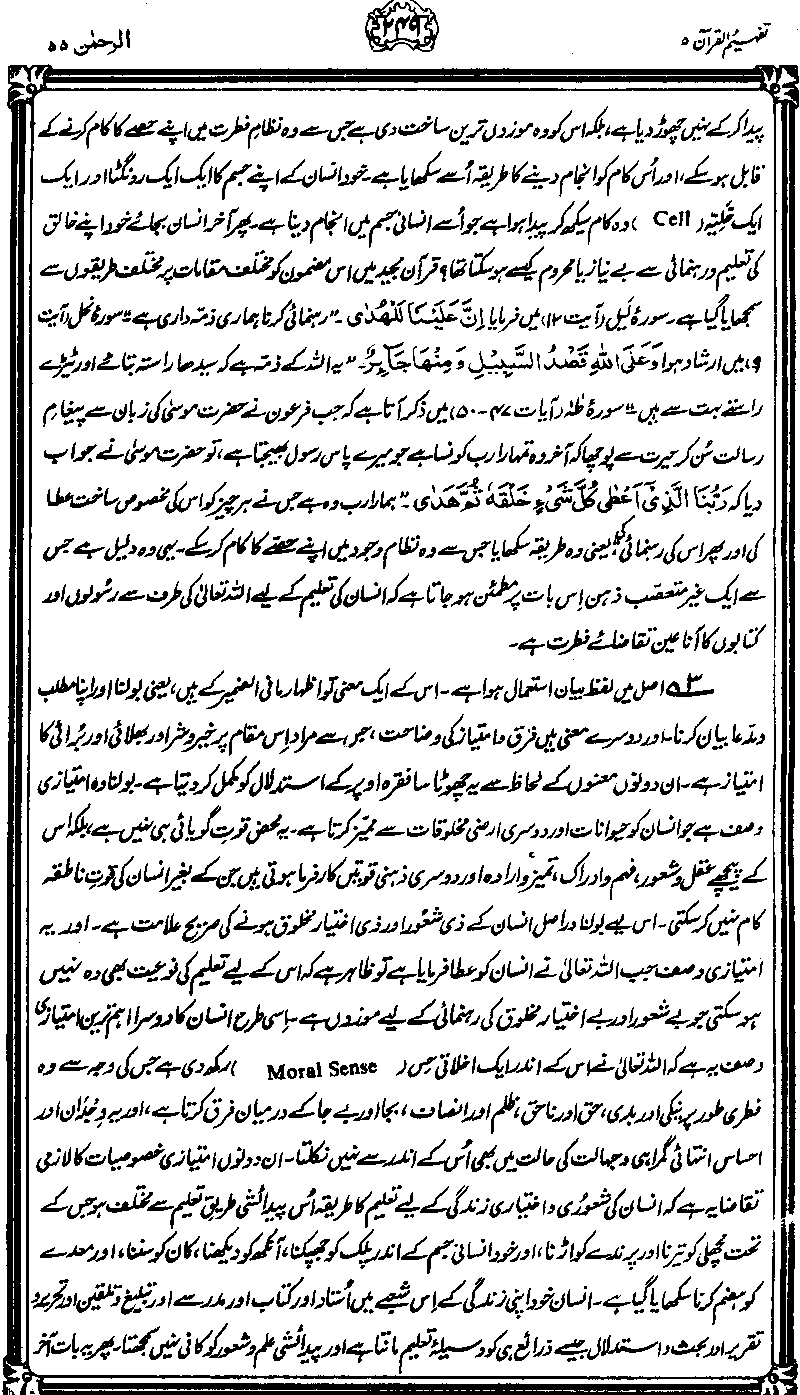 تفہیم القرآن ۵
۲۴۹
الرحمٰن ۵۵
پیدا کرکے نہیں چھوڑ دیا ہے، بلکہ اس کو وہ موزوں ترین ساخت دی ہے جس سے وہ نظامِ فطرت میں اپنے حصے کا کام کرنے کے
قابل ہو سکے، اور اُس کام کو انجام دینے کا طریقہ اُسے سکھایا ہے۔ خود انسان کے اپنے جسم کا ایک ایک رونگٹا اور ایک
ایک خَلِیّہ (Cell) وہ کام سیکھ کر پیدا ہوا ہے جو اُسے انسانی جسم میں انجام دینا ہے۔ پھر آخر انسان بجائے خود اپنے خالق
کی تعلیم و رہنمائی سے بے نیاز یا محروم کیسے ہو سکتا تھا؟ قرآن مجید میں اس مضمون کو مختلف مقامات پر مختلف طریقوں سے
سمجھایا گیا ہے۔ سورۂ لیل (آیت ۱۲) میں فرمایا اِنَّ عَلَیْنَا لَلْھُدٰی۔ "رہنمائی کرنا ہماری ذمہ داری ہے"۔ سورۂ نحل (آیت
۹) میں ارشاد ہوا وَعَلَی اللّٰہِ قَصْدُ السَّبِیْلِ وَمِنْھَا جَآئِرٌ۔ "یہ اللہ کے ذمہ ہے کہ سیدھا راستہ بتائے اور ٹیڑھے
راستے بہت سے ہیں"۔ سورۂ طٰہٰ (آیات ۴۷-۵۰) میں ذکر آتا ہے کہ جب فرعون نے حضرت موسیٰ کی زبان سے پیغامِ
رسالت سُن کر حیرت سے پوچھا کہ آخر وہ تمہارا رب کونسا ہے جو میرے پاس رسول بھیجتا ہے، تو حضرت موسیٰ نے جواب
دیا کہ رَبُّنَا الَّذِیْٓ اَعْطٰی کُلَّ شَیْءٍ خَلْقَہٗ ثُمَّ ھَدٰی۔ "ہمارا رب وہ ہے جس نے ہر چیز کو اس کی مخصوص ساخت عطا
کی اور پھر اس کی رہنمائی کی"، یعنی وہ طریقہ سکھایا جس سے وہ نظامِ وجود میں اپنے حصے کا کام کر سکے۔ یہی وہ دلیل ہے جس
سے ایک غیر متعصّب ذہن اِس بات پر مطمئن ہو جاتا ہے کہ انسان کی تعلیم کے لیے اللہ تعالیٰ کی طرف سے رسولوں اور
کتابوں کا آنا عین تقاضائے فطرت ہے۔
۳ اصل میں لفظ بیان استعمال ہوا ہے۔ اس کے ایک معنی تو اظہار مافی الضمیر کے ہیں، یعنی بولنا اور اپنا مطلب
و مدعا بیان کرنا۔ اور دوسرے معنی ہیں فرق و امتیاز کی وضاحت، جس سے مراد اِس مقام پر خیر و شر اور بھلائی اور بُرائی کا
امتیاز ہے۔ ان دونوں معنوں کے لحاظ سے یہ چھوٹا سا فقرہ اوپر کے استدلال کو مکمل کر دیتا ہے۔ بولنا وہ امتیازی
وصف ہے جو انسان کو حیوانات اور دوسری ارضی مخلوقات سے ممیّز کرتا ہے۔ یہ محض قوتِ گویائی ہی نہیں ہے، بلکہ اس
کے پیچھے عقل و شعور، فہم و ادراک، تمیز و ارادہ اور دوسری ذہنی قوتیں کارفرما ہوتی ہیں جن کے بغیر انسان کی قوتِ ناطقہ
کام نہیں کر سکتی۔ اس لیے بولنا دراصل انسان کے ذی شعور اور ذی اختیار مخلوق ہونے کی صریح علامت ہے۔ اور یہ
امتیازی وصف جب اللہ تعالیٰ نے انسان کو عطا فرمایا ہے تو ظاہر ہے کہ اس کے لیے تعلیم کی نوعیت بھی وہ نہیں
ہو سکتی جو بے شعور اور بے اختیار مخلوق کی رہنمائی کے لیے موزوں ہے۔ اِسی طرح انسان کا دوسرا اہم ترین امتیازی
وصف یہ ہے کہ اللہ تعالیٰ نے اس کے اندر ایک اخلاقی حِس (Moral Sense) رکھ دی ہے جس کی وجہ سے وہ
فطری طور پر نیکی اور بدی، حق اور ناحق، ظلم اور انصاف، بجا اور بے جا کے درمیان فرق کرتا ہے، اور یہ وجدان اور
احساس انتہائی گمراہی و جہالت کی حالت میں بھی اُس کے اندر سے نہیں نکلتا۔ ان دونوں امتیازی خصوصیات کا لازمی
تقاضا یہ ہے کہ انسان کی شعوری و اختیاری زندگی کے لیے تعلیم کا طریقہ اُس پیدائشی طریقِ تعلیم سے مختلف ہو جس کے
تحت مچھلی کو تیرنا اور پرندے کو اڑنا، اور خود انسانی جسم کے اندر پلک کو جھپکنا، آنکھ کو دیکھنا، کان کو سننا، اور معدے
کو ہضم کرنا سکھایا گیا ہے۔ انسان خود اپنی زندگی کے اِس شعبے میں اُستاد اور کتاب اور مدرسے اور تبلیغ و تلقین اور تحریر و
تقریر اور بحث و استدلال جیسے ذرائع ہی کو وسیلۂ تعلیم مانتا ہے اور پیدائشی علم و شعور کو کافی نہیں سمجھتا۔ پھر یہ بات آخر